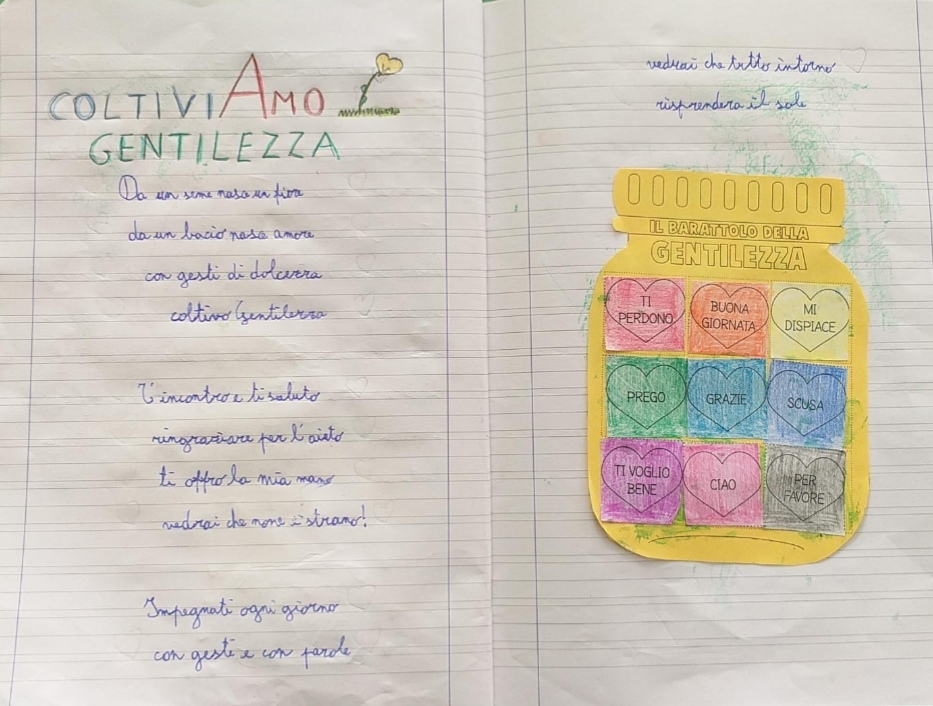 COLTIVIAMO
GENTILEZZA
Da un seme nasa un fiore
da un bacio nasa amore
con gesti di dolcezza
coltivo Gentilezza
T'incontro e ti saluto
ringraziare per l'aiuto
ti offro la mia mano
vedrai che none è strano!
Impegnati ogni giorno
con gesti e con parole
vedrai che tutto intorno
risprendera il sole
IL BARATTOLO DELLA
GENTILEZZA
TI
PERDONO
BUONA
GIORNATA
MI
DISPIACE
PREGO
GRAZIE
SCUSA
TI VOGLIO
BENE
CIAO
PER
FAVORE